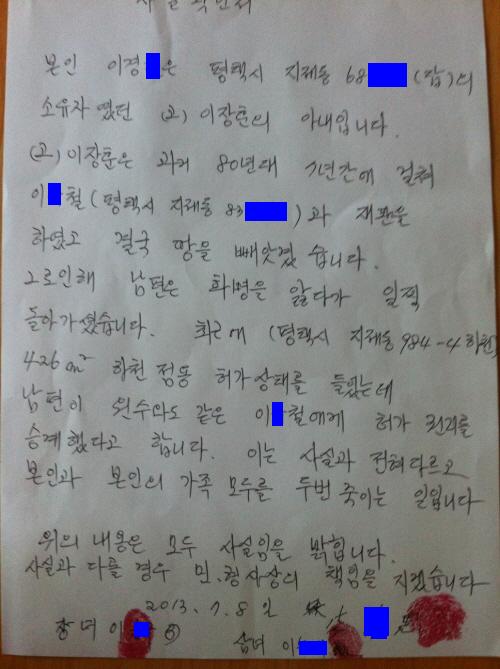 사실확인서
본인 이경 은 평택시 지제동 68 (답)의
소유자였던 (고) 이장훈의 아내입니다.
(고) 이장훈은 과거 80년대 7년간에 걸쳐
이 철 (평택시 지제동 83 )과 재판을
하였고 결국 땅을 빼앗겼습니다.
그로인해 남편은 화병을 앓다가 일찍
돌아가셨습니다. 최근에 (평택시 지제동 984-4 하천)
426㎡ 하천 점용 허가상태를 들었는데
남편이 원수와도 같은 이 철에게 허가 권리를
승계했다고 합니다. 이는 사실과 전혀 다르고
본인과 본인의 가족 모두를 두번 죽이는 일입니다
위의 내용은 모두 사실임을 밝힙니다.
사실과 다를 경우 민.형사상의 책임을 지겠습니다
2013. 7. 8 일
장녀 이
삼녀 이